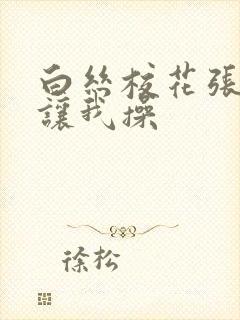 白絲校花張
讓我操
徐松